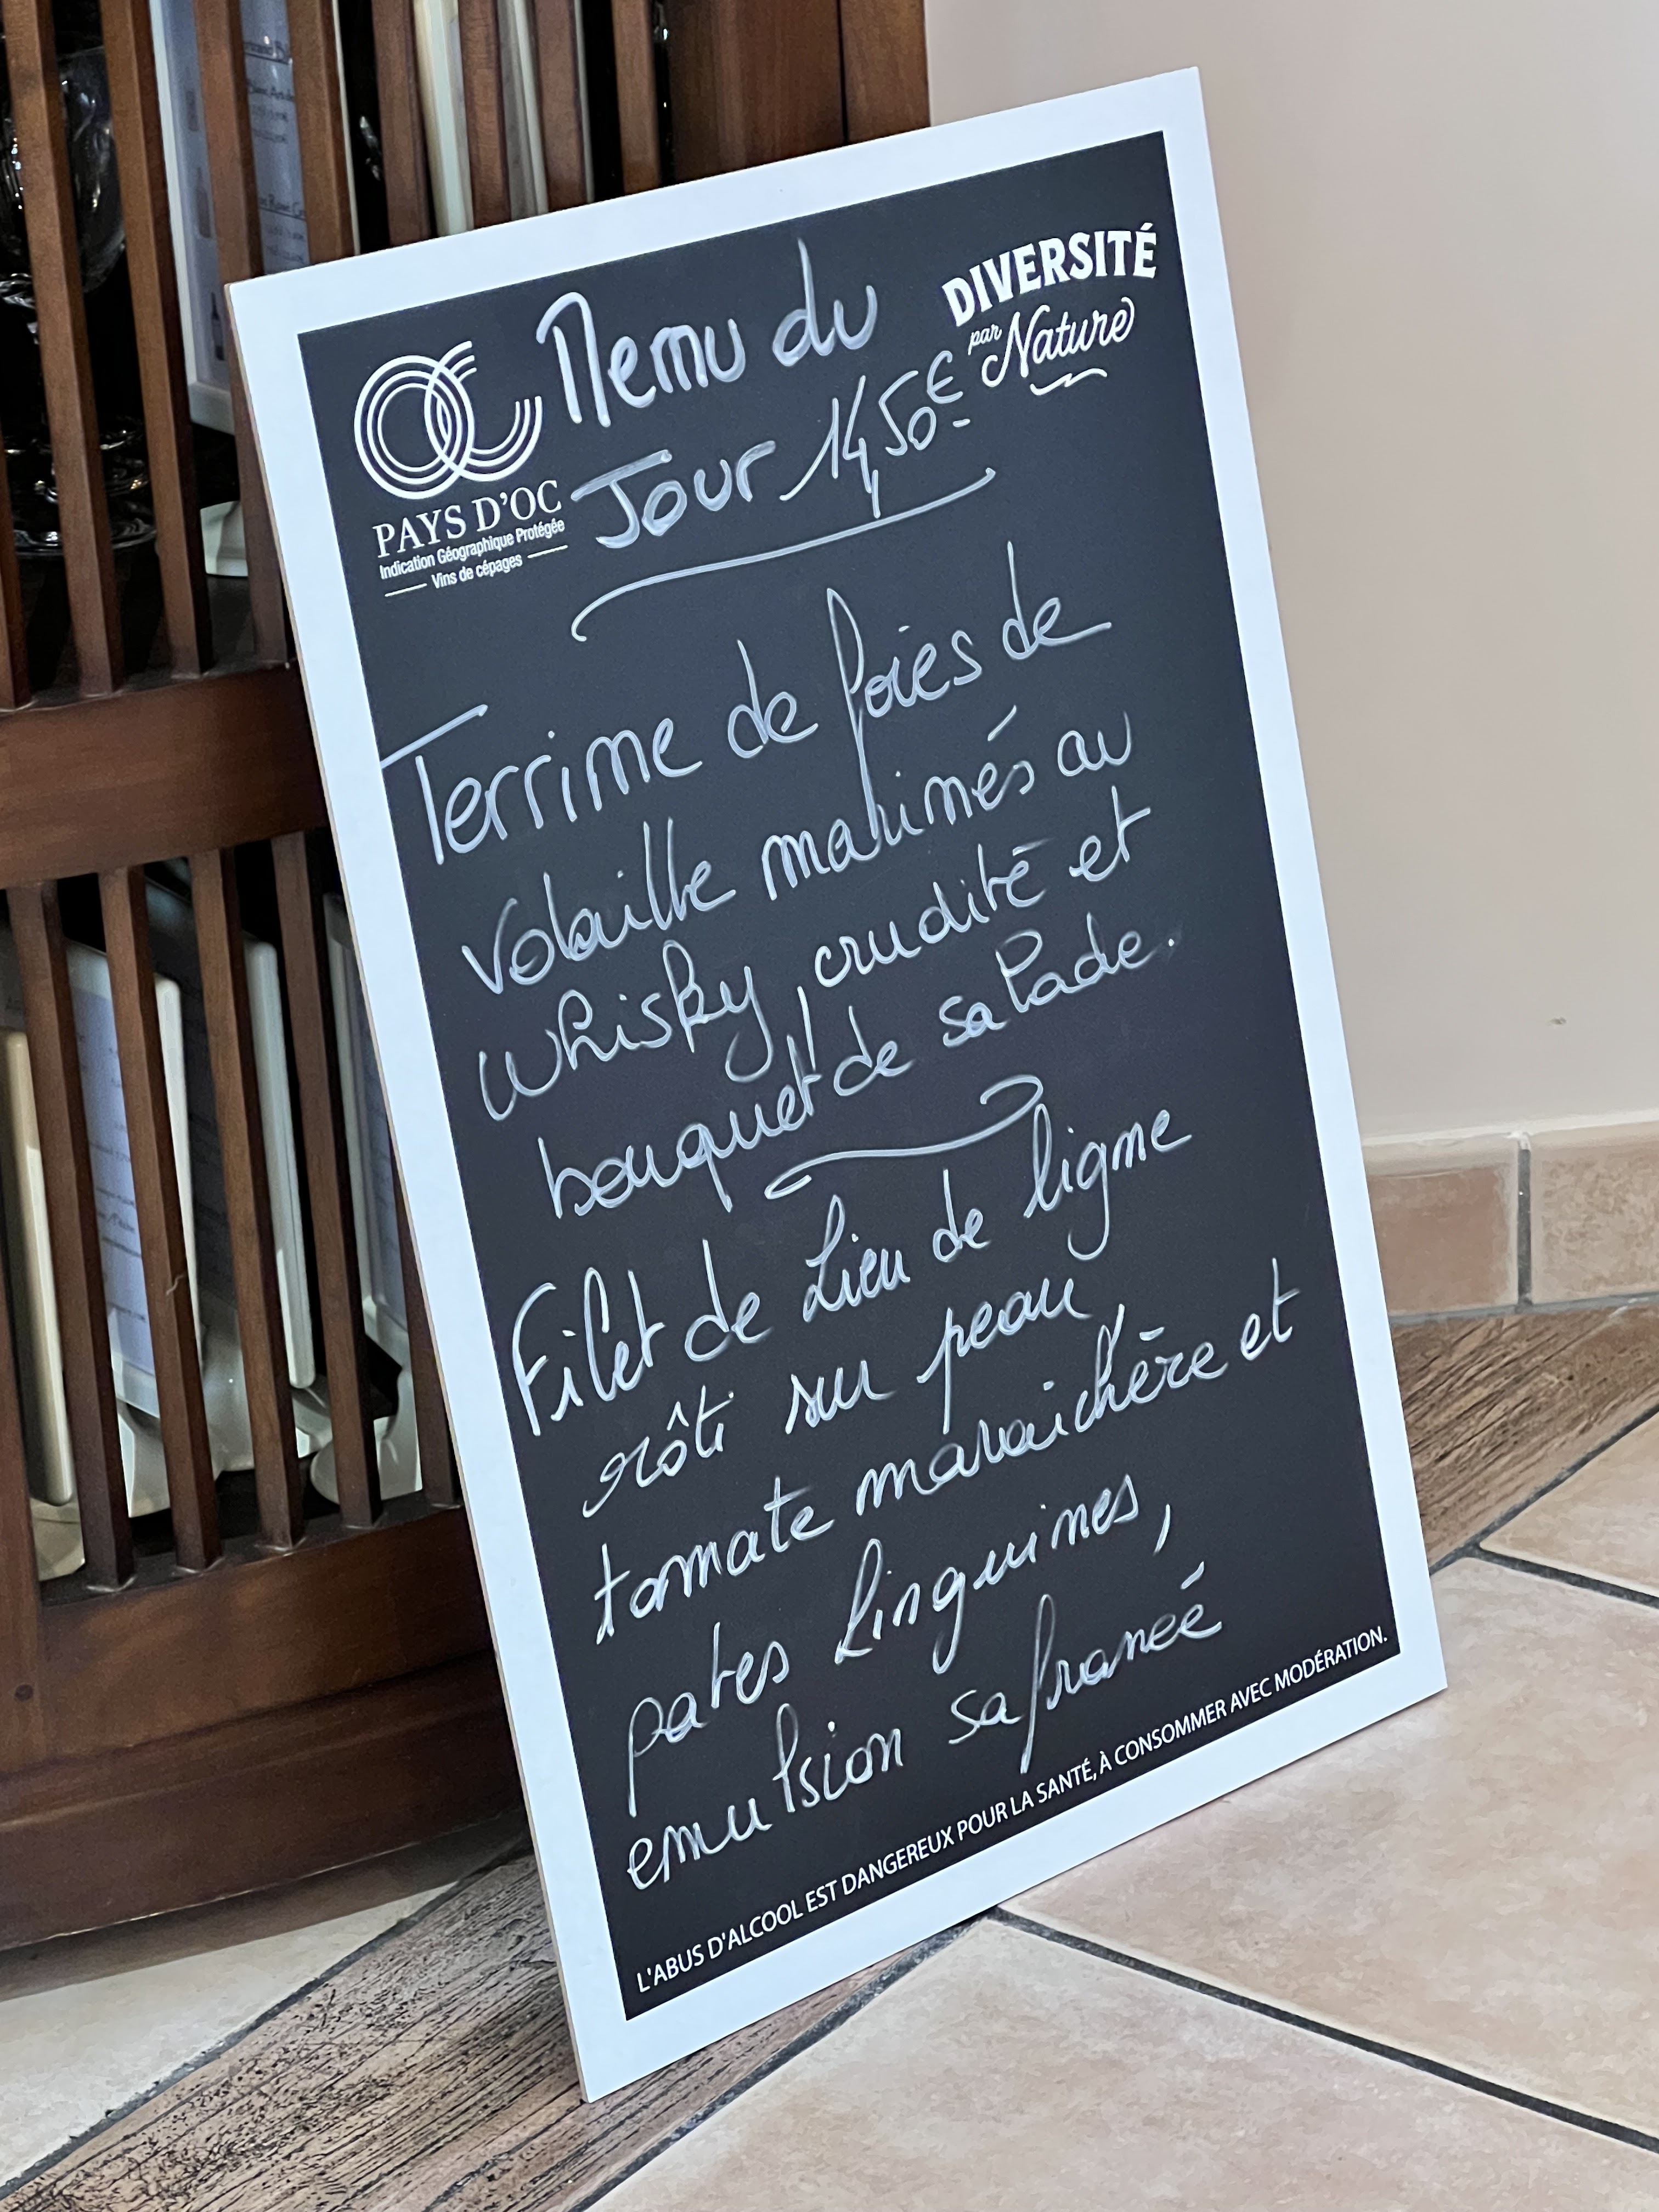 Menu du
Jour 14,50€
DIVERSITÉ
par Nature
OC
PAYS D'OC
Indication Géographique Protégée
Vins de cépages
Terrine de foies de
volaille marinés au
whisky, crudité et
bouquet de salade.
Filet de Lieu de ligne
rôti sur peau,
tomate maraichère et
pates linguines,
emulsion safranée
L'ABUS D'ALCOOL EST DANGEREUX POUR LA SANTÉ, À CONSOMMER AVEC MODÉRATION.